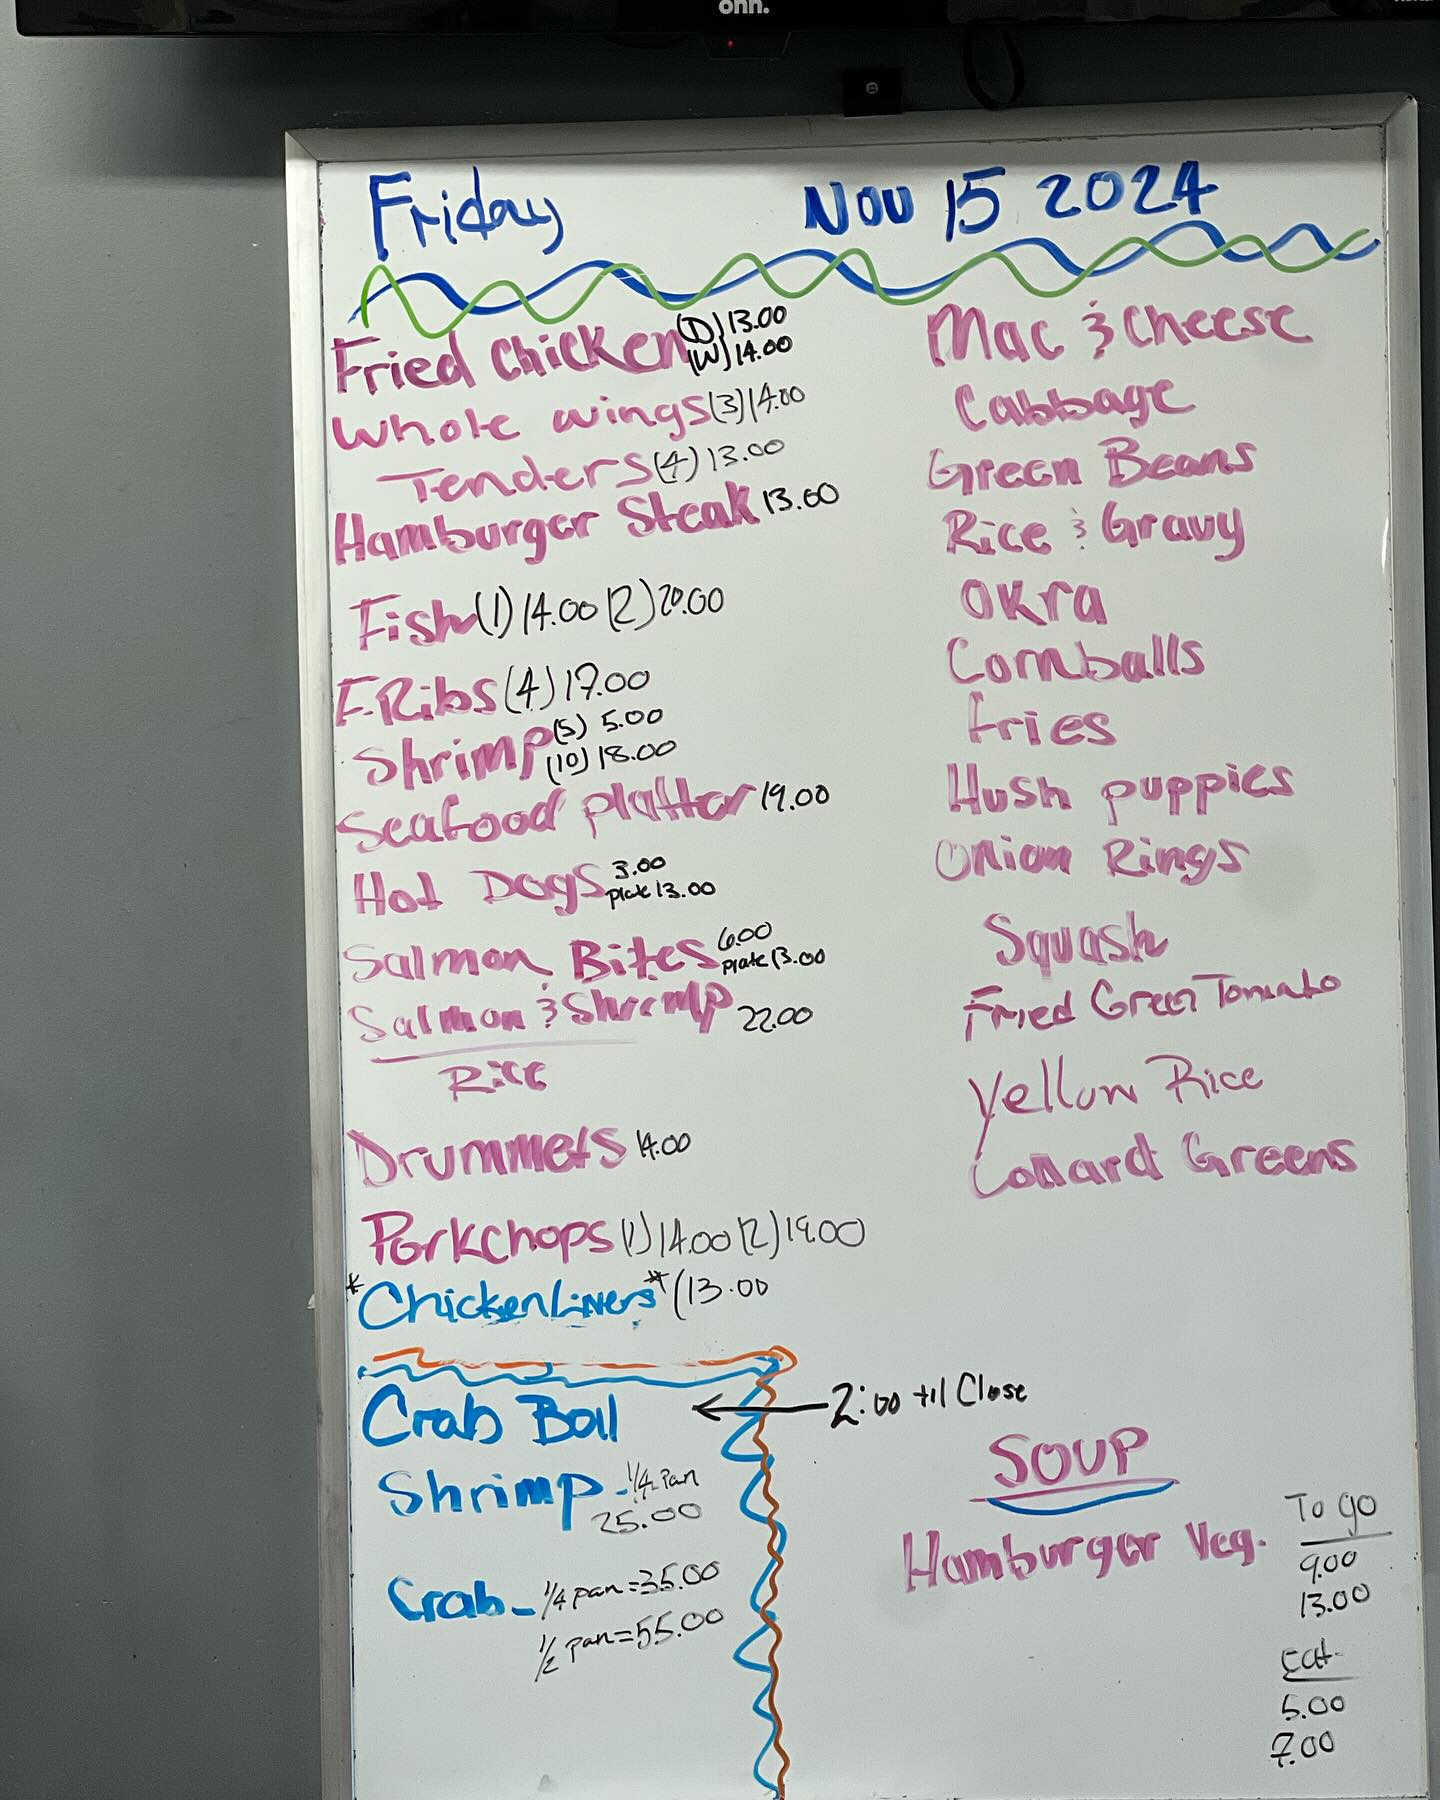 onn.
Friday Nov 15 2024
Fried Chicken (D) 13.00
(W) 14.00
Whole wings (3) 14.00
Tenders (4) 13.00
Hamburger Steak 13.00
Fish (1) 14.00 (2) 20.00
F.Ribs (4) 17.00
Shrimp (5) 5.00
(10) 18.00
Seafood platter 19.00
Hot Dogs 3.00
plate 13.00
Salmon Bites 6.00
plate 13.00
Salmon & Shrimp 22.00
Rice
Drummets 14.00
Porkchops (1) 14.00 (2) 19.00
*Chicken Livers* (13.00
Mac & Cheese
Cabbage
Green Beans
Rice & Gravy
Okra
Cornballs
Fries
Hush puppies
Onion Rings
Squash
Fried Green Tomato
Yellow Rice
Collard Greens
Crab Boil
2:00 til Close
Shrimp - 1/4 Pan
25.00
Crab - 1/4 pan = 35.00
1/2 pan = 55.00
SOUP
Hamburger Veg.
To go
9.00
13.00
Eat
5.00
7.00